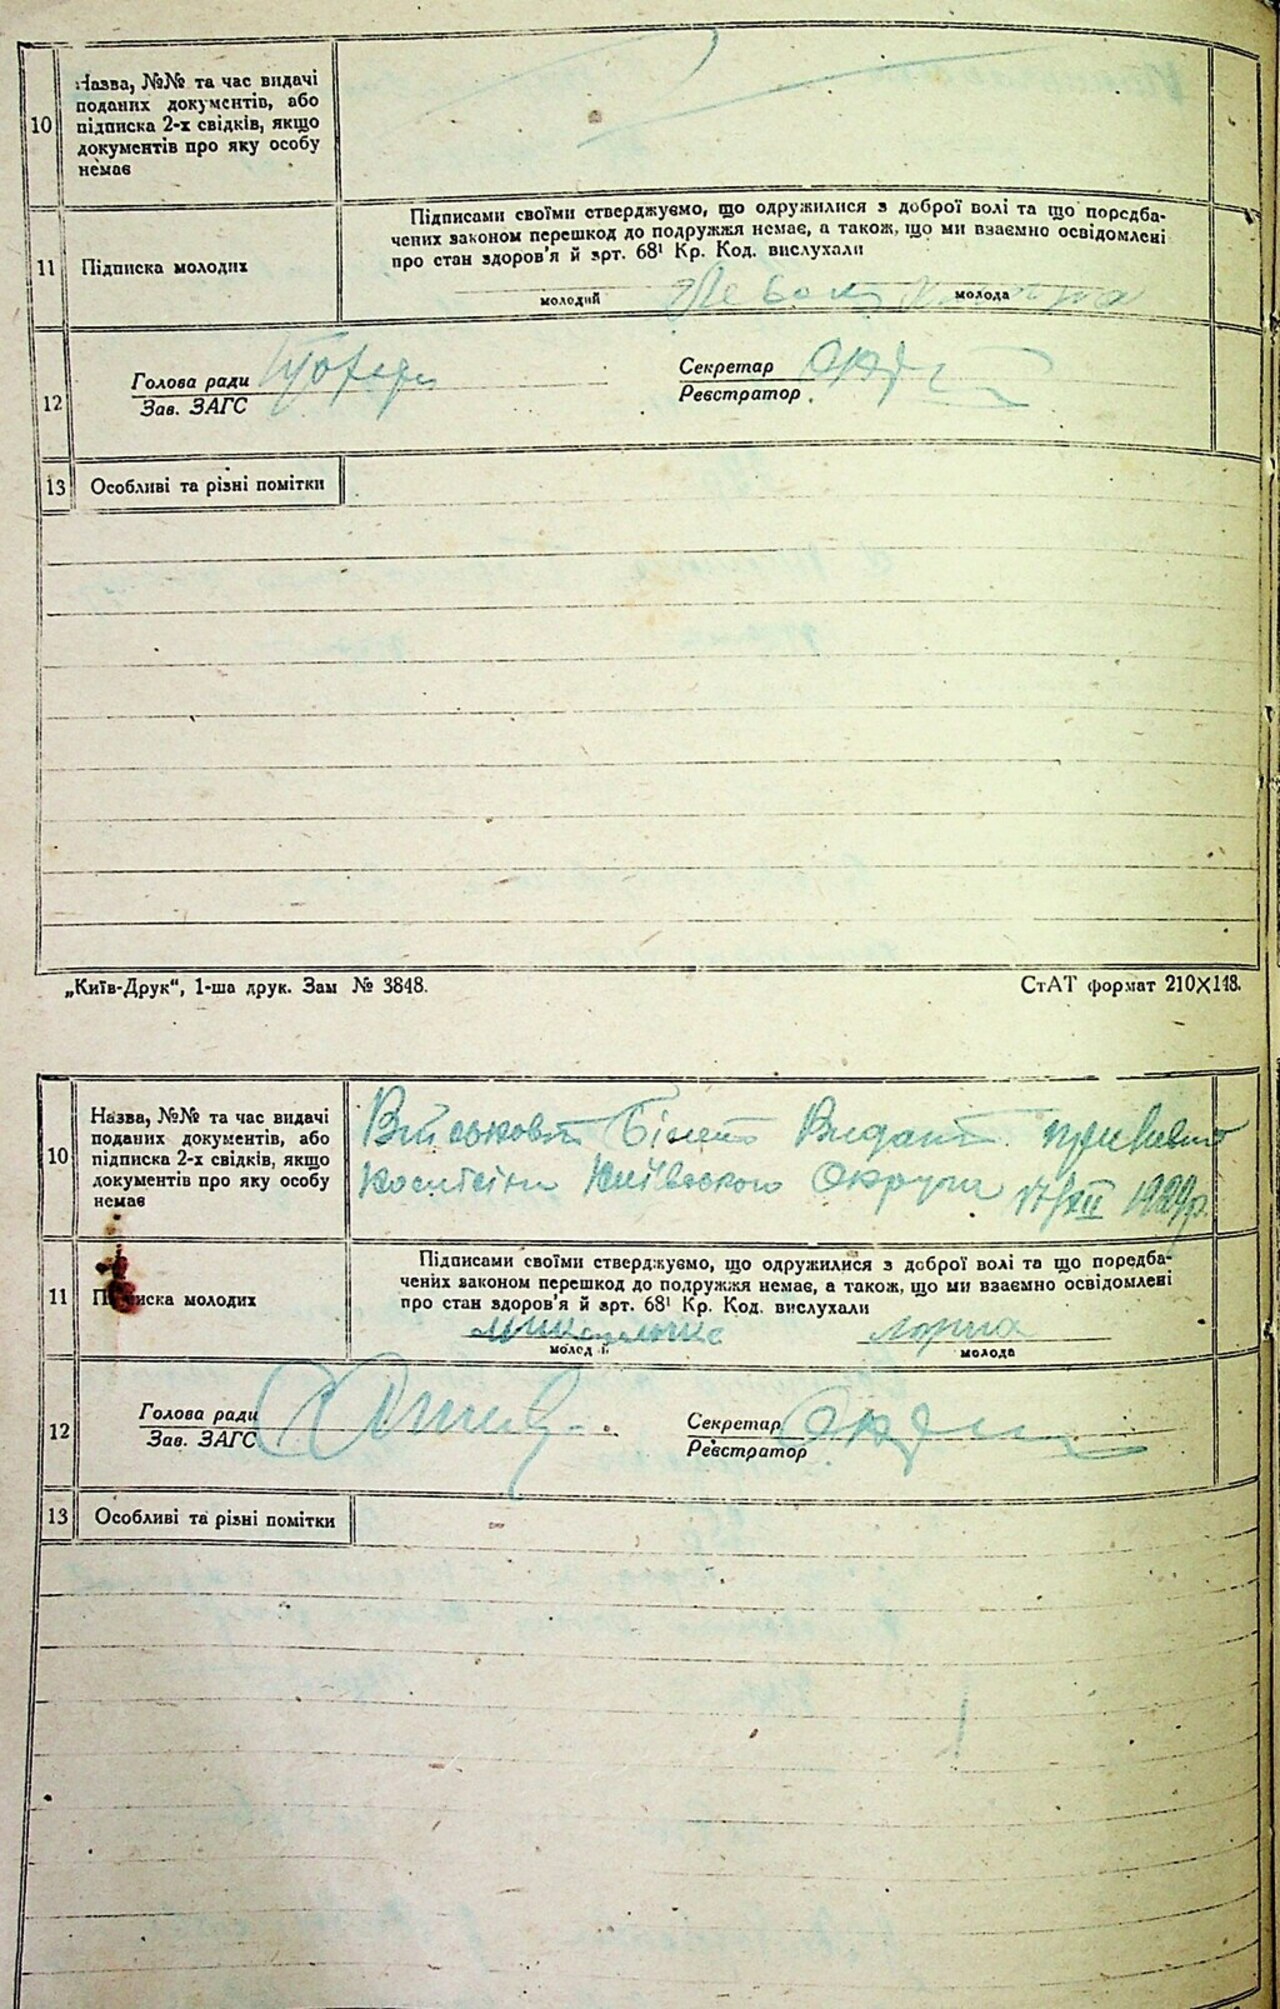 10
Назва, №№ та час видачі
поданих документів, або
підписка 2-х свідків, якщо
документів про яку особу
немає
11
Підписка молодих
Підписами своїми стверджуємо, що одружилися з доброї волі та що поредба-
чених законом перешкод до подружжя немає, а також, що ми взаємно освідомлені
про стан здоров'я й арт. 68¹ Кр. Код. вислухали
молодий молода
12
Голова ради
Зав. ЗАГС
Секретар
Реєстратор
13
Особливі та різні помітки
„Київ-Друк“, 1-ша друк. Зам № 3848.
СтАТ формат 210X148.
10
Назва, №№ та час видачі
поданих документів, або
підписка 2-х свідків, якщо
документів про яку особу
немає
Військовий Білет Видані
Київського Округи 17/XII 1929р.
11
Підписка молодих
Підписами своїми стверджуємо, що одружилися з доброї волі та що поредба-
чених законом перешкод до подружжя немає, а також, що ми взаємно освідомлені
про стан здоров'я й арт. 68¹ Кр. Код. вислухали
молодий молода
12
Голова ради
Зав. ЗАГС
Секретар
Реєстратор
13
Особливі та різні помітки